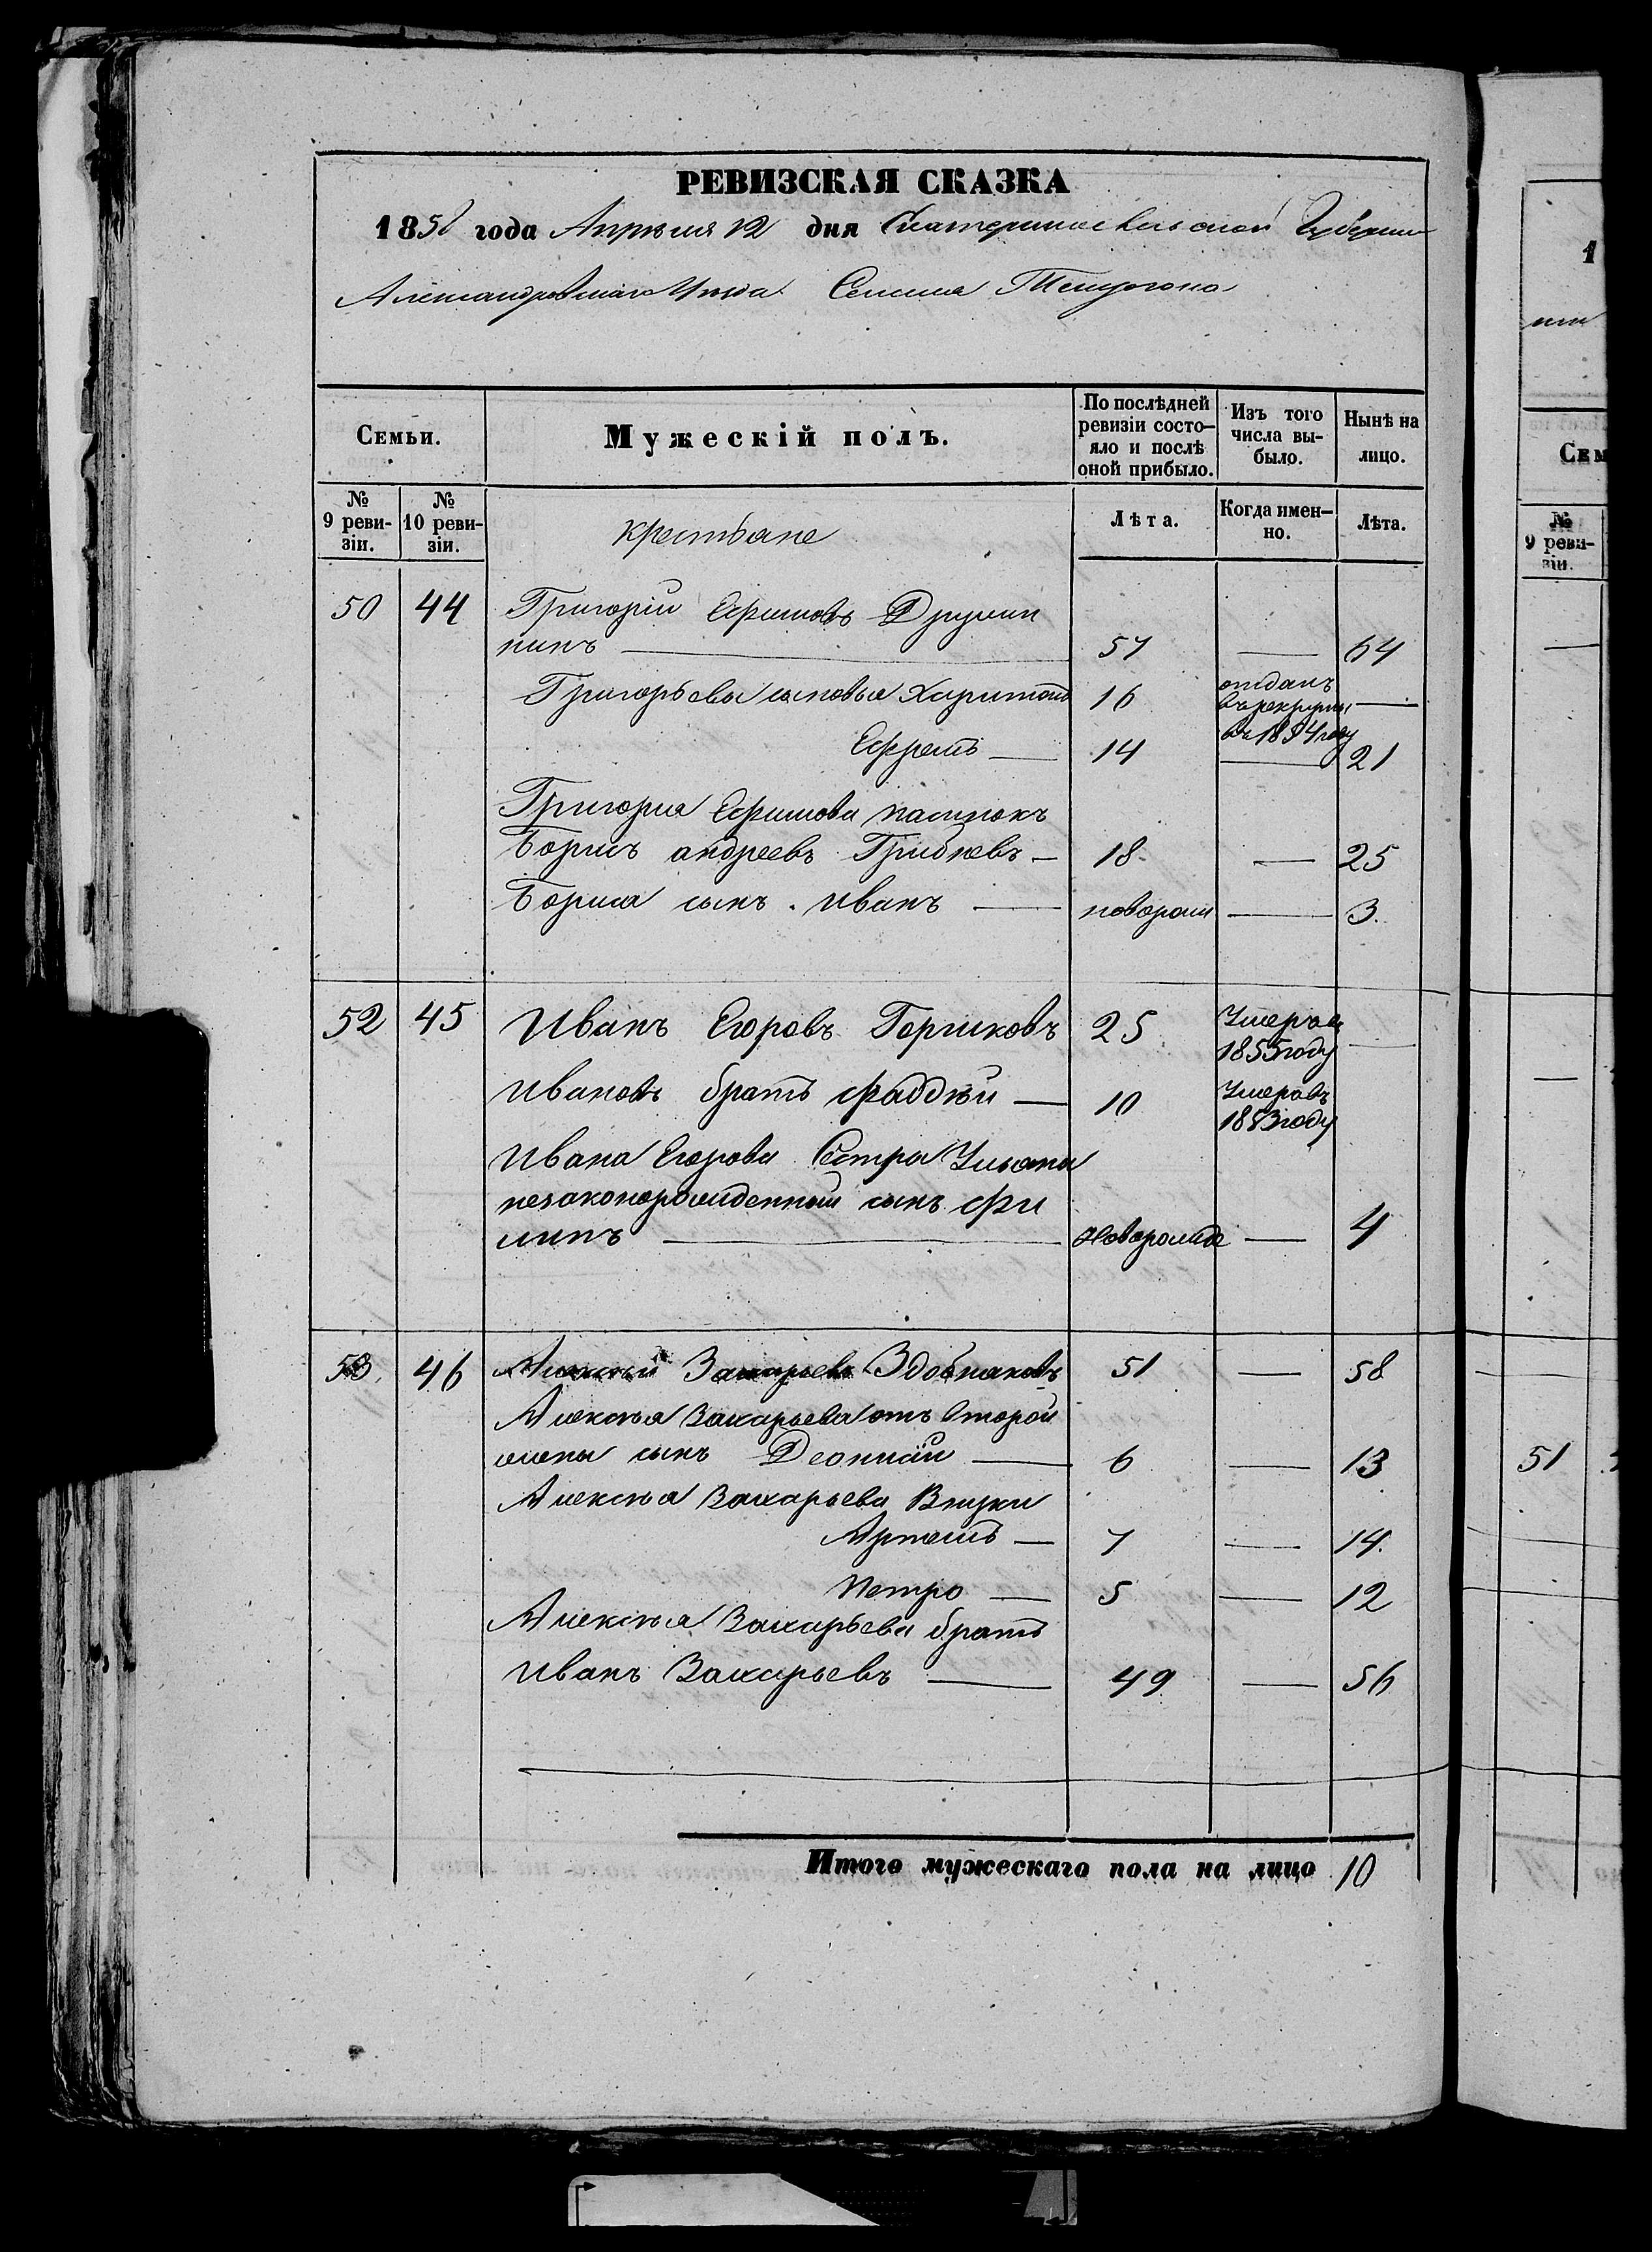 РЕВИЗСКАЯ СКАЗКА
1858 года Апрѣля 12 дня Екатеринославской Губернии
Александровскаго Уѣзда Селенія
Семьи.
Мужескій полъ.
По послѣдней ревизіи состо-
яло и послѣ оной прибыло.
Изъ того числа вы-
было.
Нынѣ на лицо.
№ 9 реви-
зіи.
№ 10 реви-
зіи.
крестьане
Лѣта.
Когда имен-
но.
Лѣта.
50 44 Григорій Ефимовъ Дружин
нинъ 57 — 64
Григорьевы сыновья Харитонъ 16 отданъ въ рекруты въ 1854 году —
Ефремъ — 14 — 21
Григорія Ефимова пасынокъ
Борисъ андреевъ Грибневъ — 18 — 25
Бориса сынъ Иванъ — новорож — 3.
52 45 Иванъ Егоровъ Горшковъ 25 Умеръ въ 1855 году —
Ивановъ братъ Фаддѣй — 10 Умеръ въ 1853 году
Ивана Егорова Сестры Ульяны
незаконорожденный сынъ Фи
липъ — новорожде — 4
53. 46 Алексѣй Захарьевъ Здобняковъ 51 — 58
Алексѣя Захарьева отъ второй
жены сынъ Леонтій — 6 — 13
Алексѣя Захарьева Внуки
Артемъ — 7 — 14.
Петро — 5 — 12
Алексѣя Захарьева братъ
Иванъ Захарьевъ — 49 — 56
Итого мужескаго пола на лицо 10
1
Сем
№ 9 реви-
зіи.
51